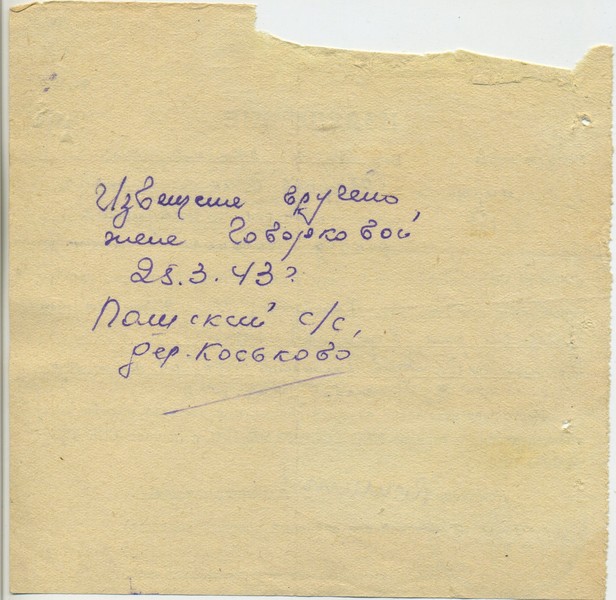 Извещение вручено
жене Говорковой
25.3.43г.
Пашский с/с,
дер. Коськово